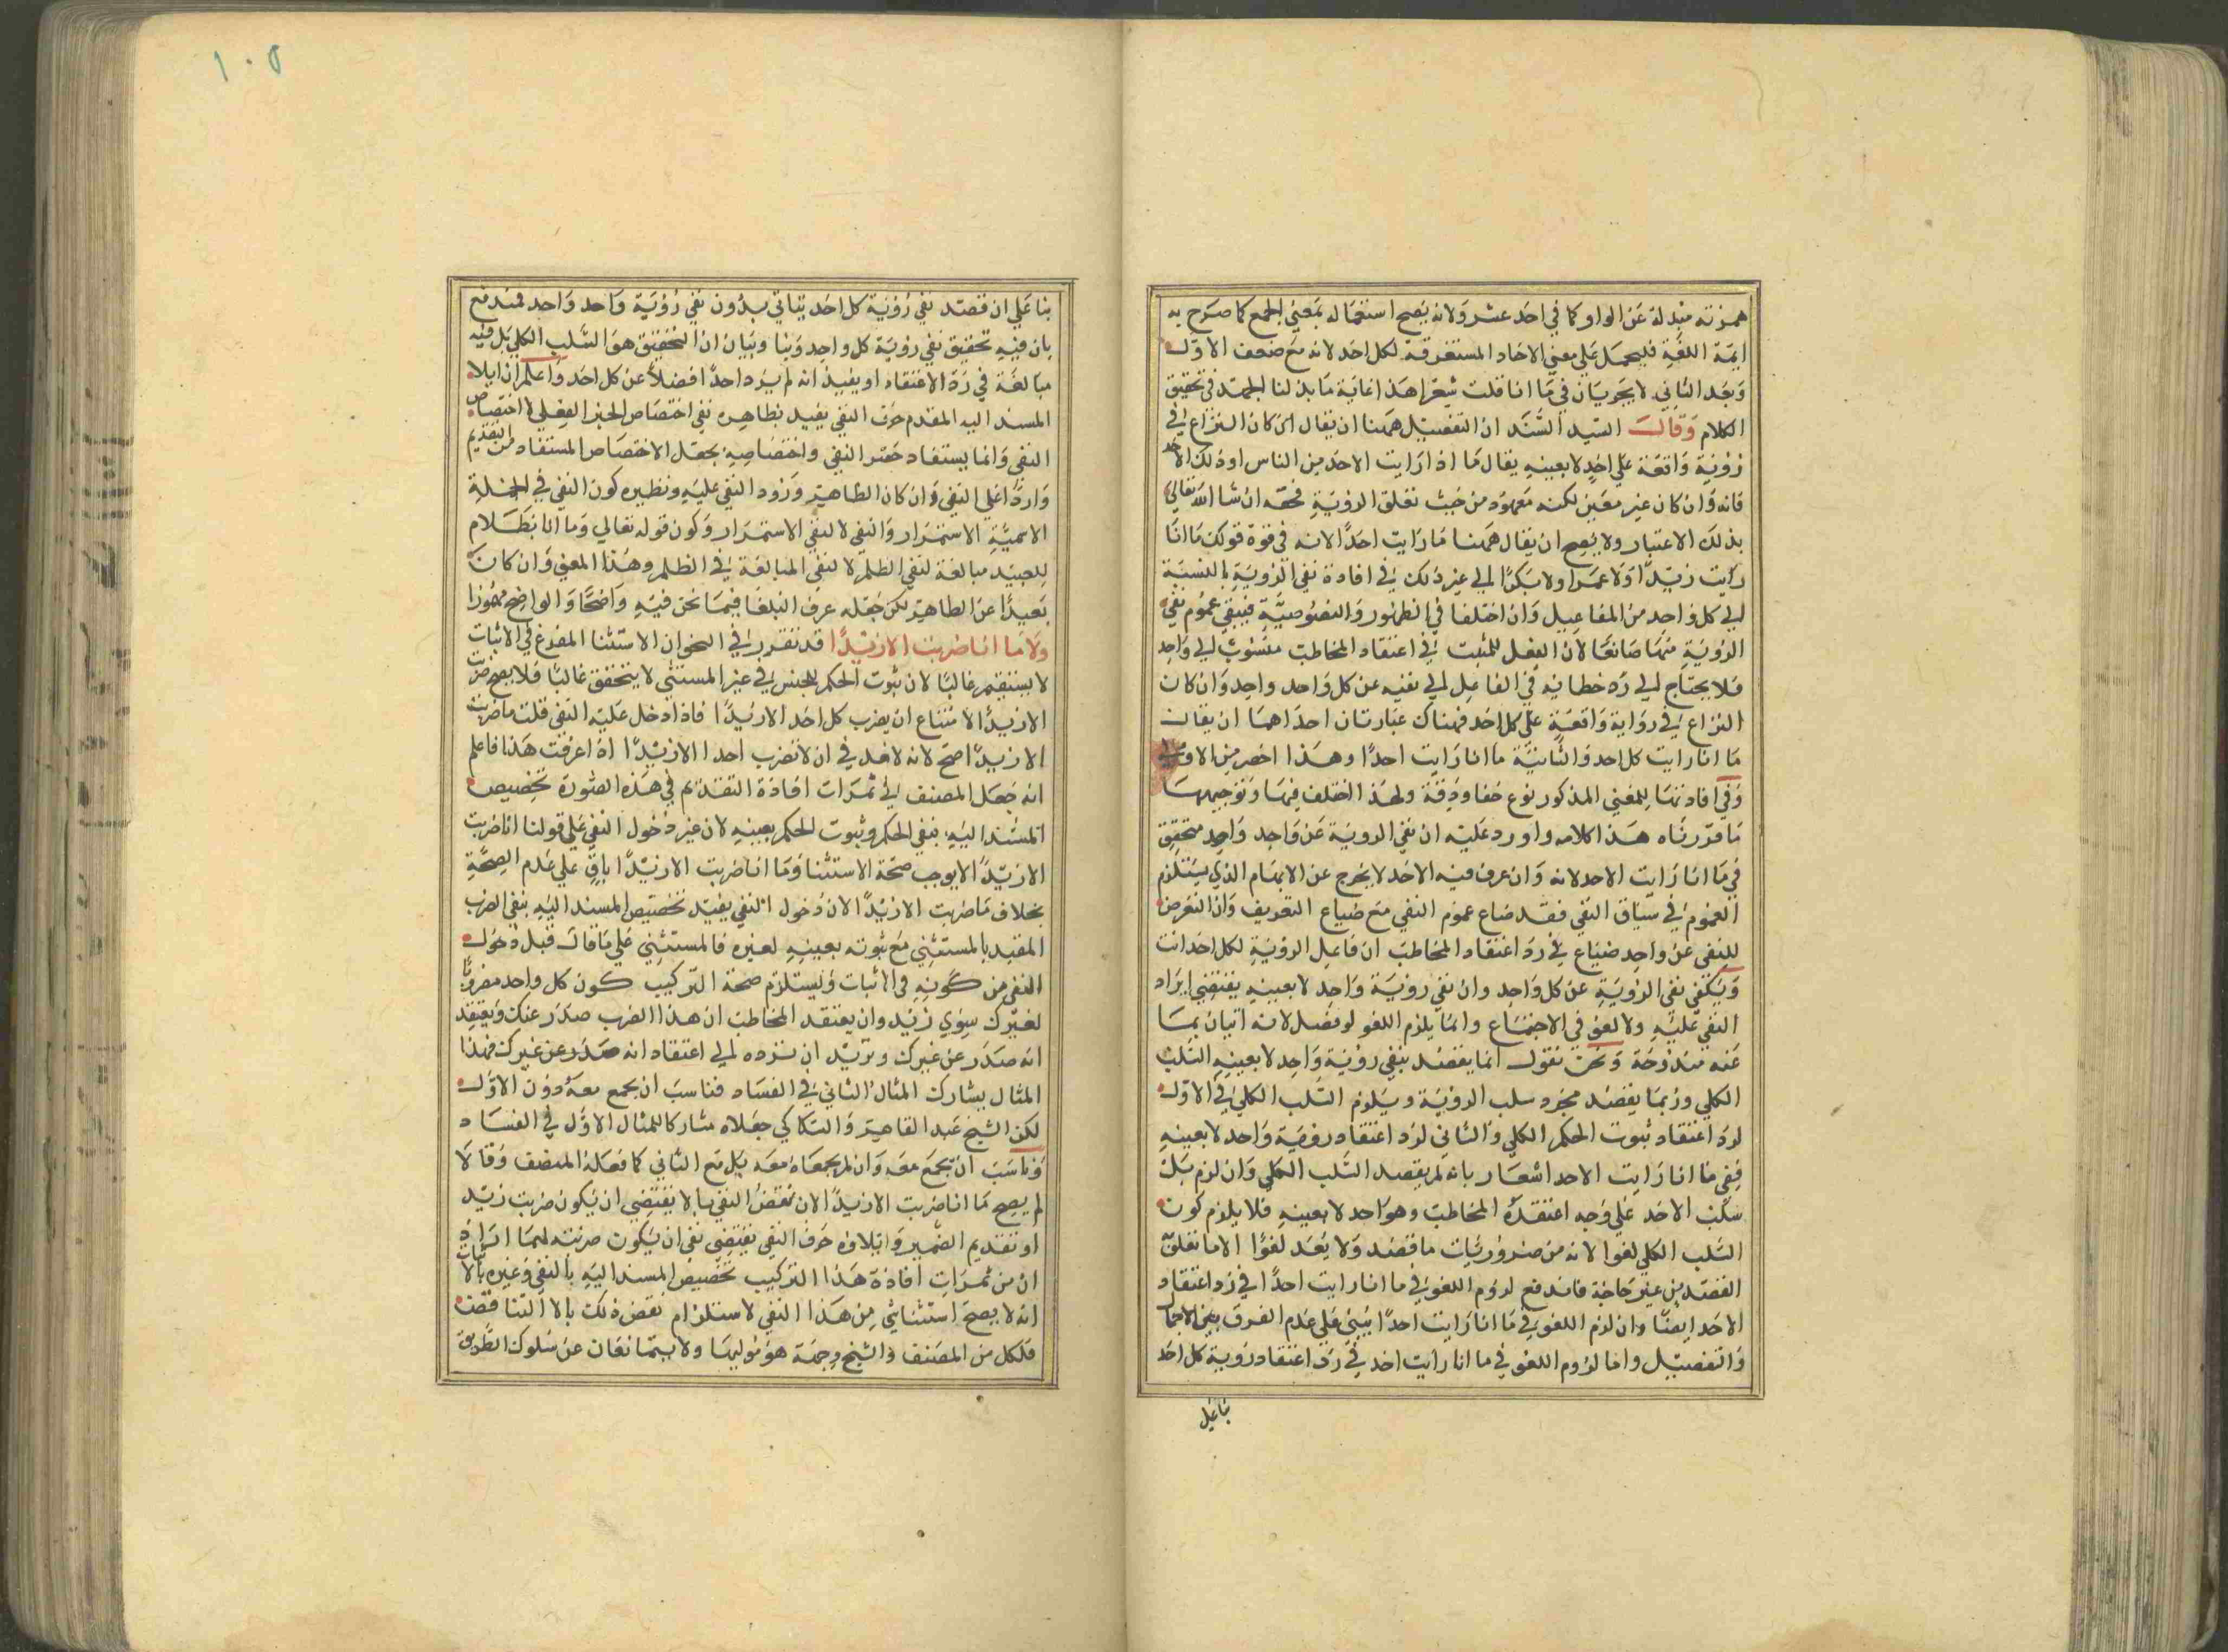 همزته مبدلة عن الواو كما في احد عشر ولانه يصح استعماله بمعني الجمع كما صرح به
ايمة اللغة فليحمل علي معني الاحاد المستغرقة لكل احد لانه مع ضعف الاول
وبعد الثاني لا يجريان في ما انا قلت شعرا هذا غاية ما بذلنا الجهد في تحقيق
الكلام وقال السيد السند ان التفصيل ههنا ان يقال ان كان النزاع في
رؤية واقعة علي احد لا بعينه يقال ما انا رايت الاحد من الناس او ذلك الاحد
فانه وان كان غير معين لكنه معهود من حيث تعلق الرؤية فحقه ان شا الله تعالي
بذلك الاعتبار ولا يصح ان يقال ههنا ما رايت احدا لانه في قوة قولك ما انا
رايت زيدا ولا عمرا ولا بكرا الي غير ذلك في افادة نفي الرؤية بالنسبة
الي كل واحد من المفاعيل وان اختلفا في الظهور والنصوصية فيبقي عموم نفي
الرؤية منهما ضائعا لان الفعل المثبت في اعتقاد المخاطب منسوب الي واحد
فلا يحتاج الي رد خطائه في الفاعل الي نفيه عن كل واحد واحد وان كان
النزاع في رواية واقعة علي كل احد فهناك عبارتان احداهما ان يقال
ما انا رايت كل احد والثانية ما انا رايت احدا وهذا اخصر من الاولي
وفي افادتها للمعني المذكور نوع خفا ودقة ولهذا اختلف فيها وتوجيهها
ما قررناه هذا كلامه واورد عليه ان نفي الروية عن واحد واحد متحقق
في ما انا رايت الاحد لانه وان عرف فيه الاحد لا يخرج عن الابهام الذي يستلزم
العموم في سياق النفي فقد ضاع عموم النفي مع ضياع التعريف وان التعرض
للنفي عن واحد ضياع في رد اعتقاد المخاطب ان فاعل الرؤية لكل احد انت
ويكفي نفي الرؤية عن كل واحد وان نفي رؤية واحد لا بعينه يقتضي ايراد
النفي عليه ولا لغو في الاجتماع وانما يلزم اللغو لو فصل لانه اتيان بما
عنه مندوحة ونحن نقول انما يقصد بنفي رؤية واحد لا بعينه السلب
الكلي وربما يقصد مجرد سلب الرؤية ويلزم السلب الكلي في الاول
لرد اعتقاد ثبوت الحكم الكلي والثاني لرد اعتقاد روية واحد لا بعينه
ففي ما انا رايت الاحد اشعار بانه لم يقصد السلب الكلي وان لزم بل
سلب الاحد علي وجه اعتقده المخاطب وهو احد لا بعينه فلا يلزم كون
السلب الكلي لغوا لانه من ضروريات ما قصد ولا يعد لغوا الا ما تعلق
القصد من غير حاجة فاندفع لزوم اللغو في ما انا رايت احدا في رد اعتقاد
الاحد ايضا وان لزم اللغو في ما انا رايت احدا يبني علي عدم الفرق بين الاجمال
والتفصيل واما لزوم اللغو في ما انا رايت احد في رد اعتقاد روية كل احد
بنا علي
١٠٥
بنا علي ان قصد نفي رؤية كل احد يتاتي بدون نفي رؤية واحد واحد فمندفع
بان فيه تحقيق نفي رؤية كل واحد وبيان ان التحقيق هو السلب الكلي بل فيه
مبالغة في رد الاعتقاد او يفيد انه لم ير د احدا فضلا عن كل احد واعلم ان ايلا
المسند اليه المقدم حرف النفي يفيد بظاهره نفي اختصاص الخبر الفعلي لا اختصاص
النفي وانما يستفاد حصر النفي واختصاصه بجعل الاختصاص المستفاد من التقديم
واردا علي النفي وان كان الظاهر ورود النفي عليه ونظيره كون النفي في الجملة
الاسمية الاستمرار والنفي لا لنفي الاستمرار وكون قوله تعالي وما انا بظلام
للعبيد مبالغة لنفي الظلم لا لنفي المبالغة في الظلم وهذا المعني وان كان
بعيدا عن الظاهر لكن جعله عرف البلغا فيما نحن فيه واضحا والواضح مهجورا
ولا ما انا ضربت الا زيدا قد تقرر في النحو ان الاستثنا المفرغ في الاثبات
لا يستقيم غالبا لان ثبوت الحكم للجنس في غير المستثني لا يتحقق غالبا فلا يصح ضربت
الا زيدا لامتناع ان يضرب كل احد الا زيدا فاذا دخل عليه النفي قلت ما ضربت
الا زيدا صح لانه لا بعد في ان لا تضرب احدا الا زيدا اذا عرفت هذا فاعلم
انه جعل المصنف في ثمرات افادة التقديم في هذه الصورة تخصيص
المسند اليه بنفي الحكم وثبوت الحكم بعينه لان غير دخول النفي علي قولنا انا ضربت
الا زيدا لا يوجب صحة الاستثنا وما انا ضربت الا زيدا باق علي عدم الصحة
بخلاف ما ضربت الا زيدا لان دخول النفي يفيد تخصيص المسند اليه بنفي الضرب
المقيد بالمستثني مع ثبوته بعينه لغيره فالمستثني علي ما قال قبل دخول
النفي من كونه في الاثبات ويستلزم صحة التركيب كون كل واحد مضروبا
لغيرك سوي زيد وان يعتقد المخاطب ان هذا الضرب صدر عنك ويعتقد
انه صدر عن غيرك وتريد ان ترده الي اعتقاد انه صدر عن غيرك فهذا
المثال يشارك المثال الثاني في الفساد فناسب ان يجمع معه دون الاول
لكن الشيخ عبد القاهر والسكاكي جعلاه مشاركا للمثال الاول في الفساد
وناسب ان يجمع معه وان لم يجمعاه معه بل مع الثاني كما فعله المصنف وقالا
لم يصح ما انا ضربت الا زيدا لان نقض النفي بالا يقتضي ان يكون ضربت زيد
او تقديم الضمير وايلاؤه حرف النفي يقتضي نفي ان يكون ضربته لهما اراد
ان من ثمرات افادة هذا التركيب تخصيص المسند اليه بالنفي وغيره بالاثبات
انه لا يصح استثنا شي من هذا النفي لاستلزام نقض ذلك بالا التناقض
فلكل من المصنف والشيخ وجهة هو موليها ولا يتمانعان عن سلوك الطريق